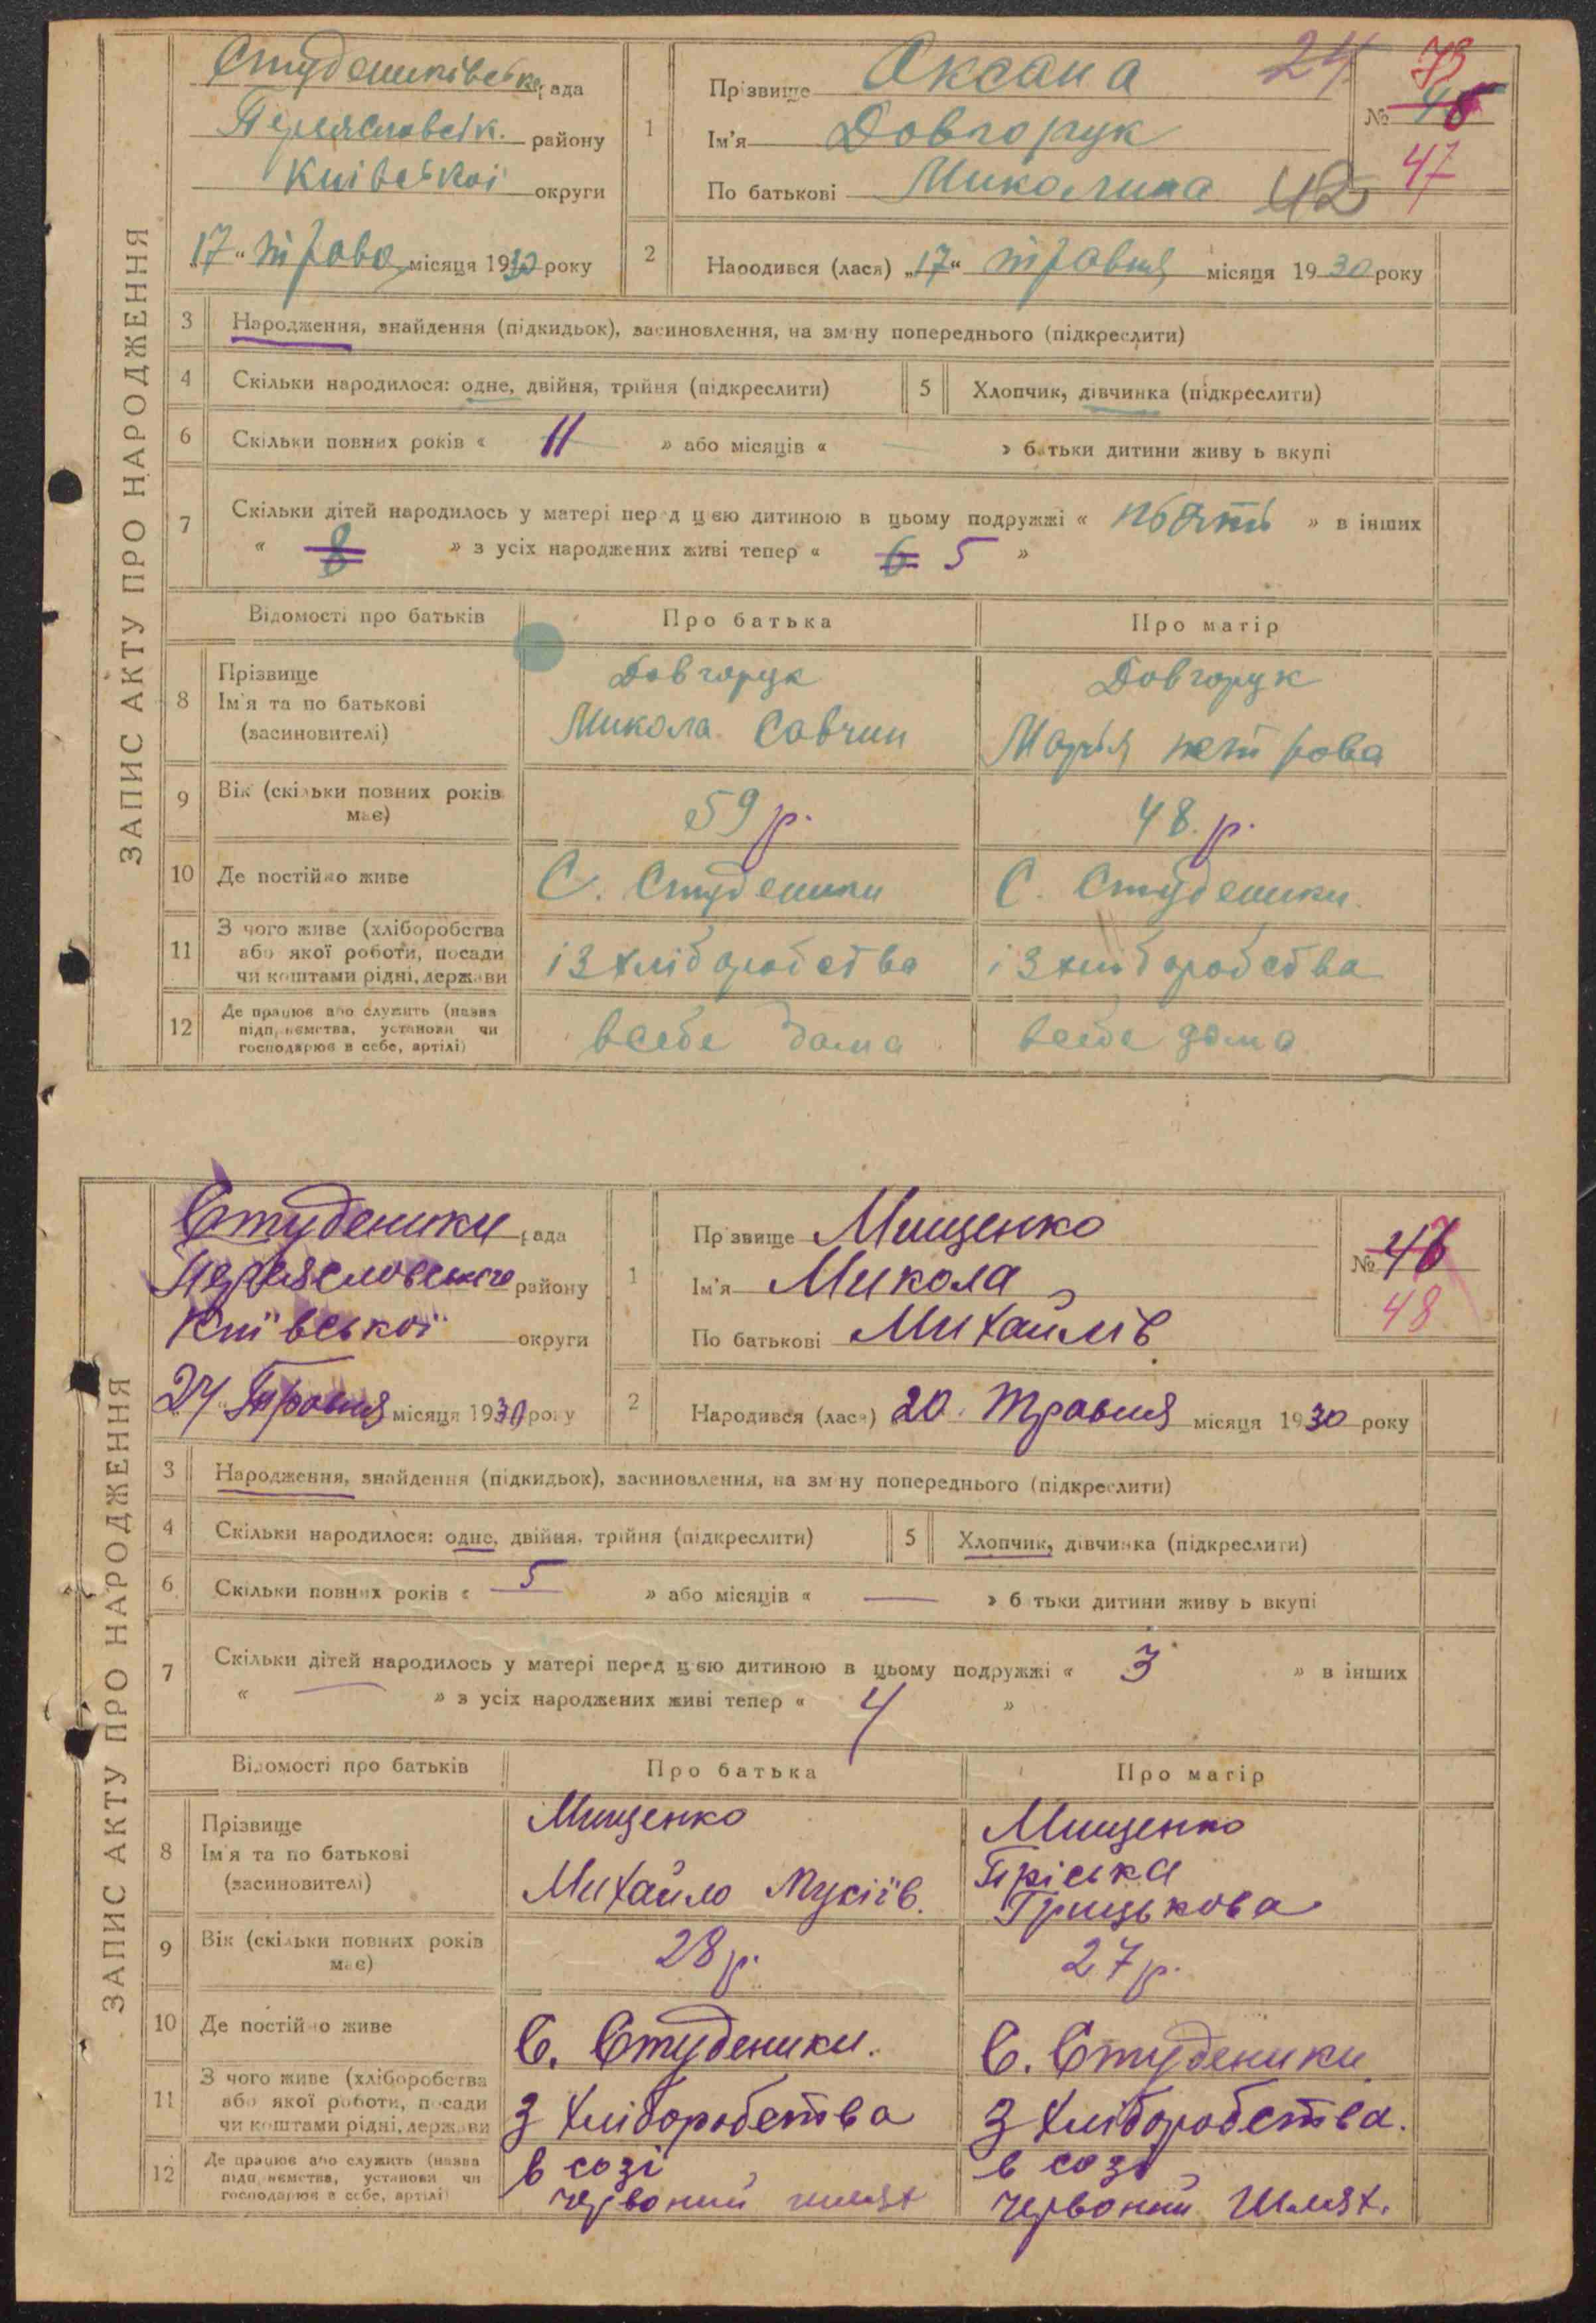 ЗАПИС АКТУ ПРО НАРОДЖЕННЯ
Студениківська рада
Переяславськ. району
Київської округи
„17“ траво місяця 1930 року
1
Прізвище Оксана 24
Ім’я Довгорук
По батькові Миколина 42
№ 73
46
47
2
Народився (лася) „17“ травня місяця 1930 року
3 Народження, знайдення (підкидьок), засиновлення, на зміну попереднього (підкреслити)
4 Скільки народилося: одне, двійня, трійня (підкреслити) 5 Хлопчик, дівчинка (підкреслити)
6 Скільки повних років « 11 » або місяців « — » батьки дитини живуть вкупі
7 Скільки дітей народилось у матері перед цією дитиною в цьому подружжі « пьять » в інших
« 8 » з усіх народжених живі тепер « 6 5 »
Відомості про батьків Про батька Про матір
8 Прізвище
Ім’я та по батькові
(засиновителі)
Довгорук
Микола Савчин
Довгорук
Марья петрова
9 Вік (скільки повних років
має)
59 р.
48 р.
10 Де постійно живе С. Студеники С. Студеники.
11 З чого живе (хліборобства
або якої роботи, посади
чи коштами рідні, держави
із хліборобства
із хліборобства
12 Де працює або служить (назва
підприємства, установи чи
господарює в себе, артілі)
всебе дома
всебе дома
ЗАПИС АКТУ ПРО НАРОДЖЕННЯ
Студеники рада
Переяславського району
Київської округи
27 Травня місяця 1930 року
1
Прізвище Мищенко
Ім’я Микола
По батькові Михайлів
№ 46
48
2
Народився (лася) 20. Травня місяця 1930 року
3 Народження, знайдення (підкидьок), засиновлення, на зміну попереднього (підкреслити)
4 Скільки народилося: одне, двійня, трійня (підкреслити) 5 Хлопчик, дівчинка (підкреслити)
6 Скільки повних років « 5 » або місяців « — » батьки дитини живуть вкупі
7 Скільки дітей народилось у матері перед цією дитиною в цьому подружжі « 3 » в інших
« — » з усіх народжених живі тепер « 4 »
Відомості про батьків Про батька Про матір
8 Прізвище
Ім’я та по батькові
(засиновителі)
Мищенко
Михайло Мусіїв.
Мищенко
Пріська
Грицькова
9 Вік (скільки повних років
має)
28 р.
27 р.
10 Де постійно живе С. Студеники. С. Студеники
11 З чого живе (хліборобства
або якої роботи, посади
чи коштами рідні, держави
З хліборобства
З хліборобства.
12 Де працює або служить (назва
підприємства, установи чи
господарює в себе, артілі)
в созі
червоний шлях
в созі
червоний Шлях.